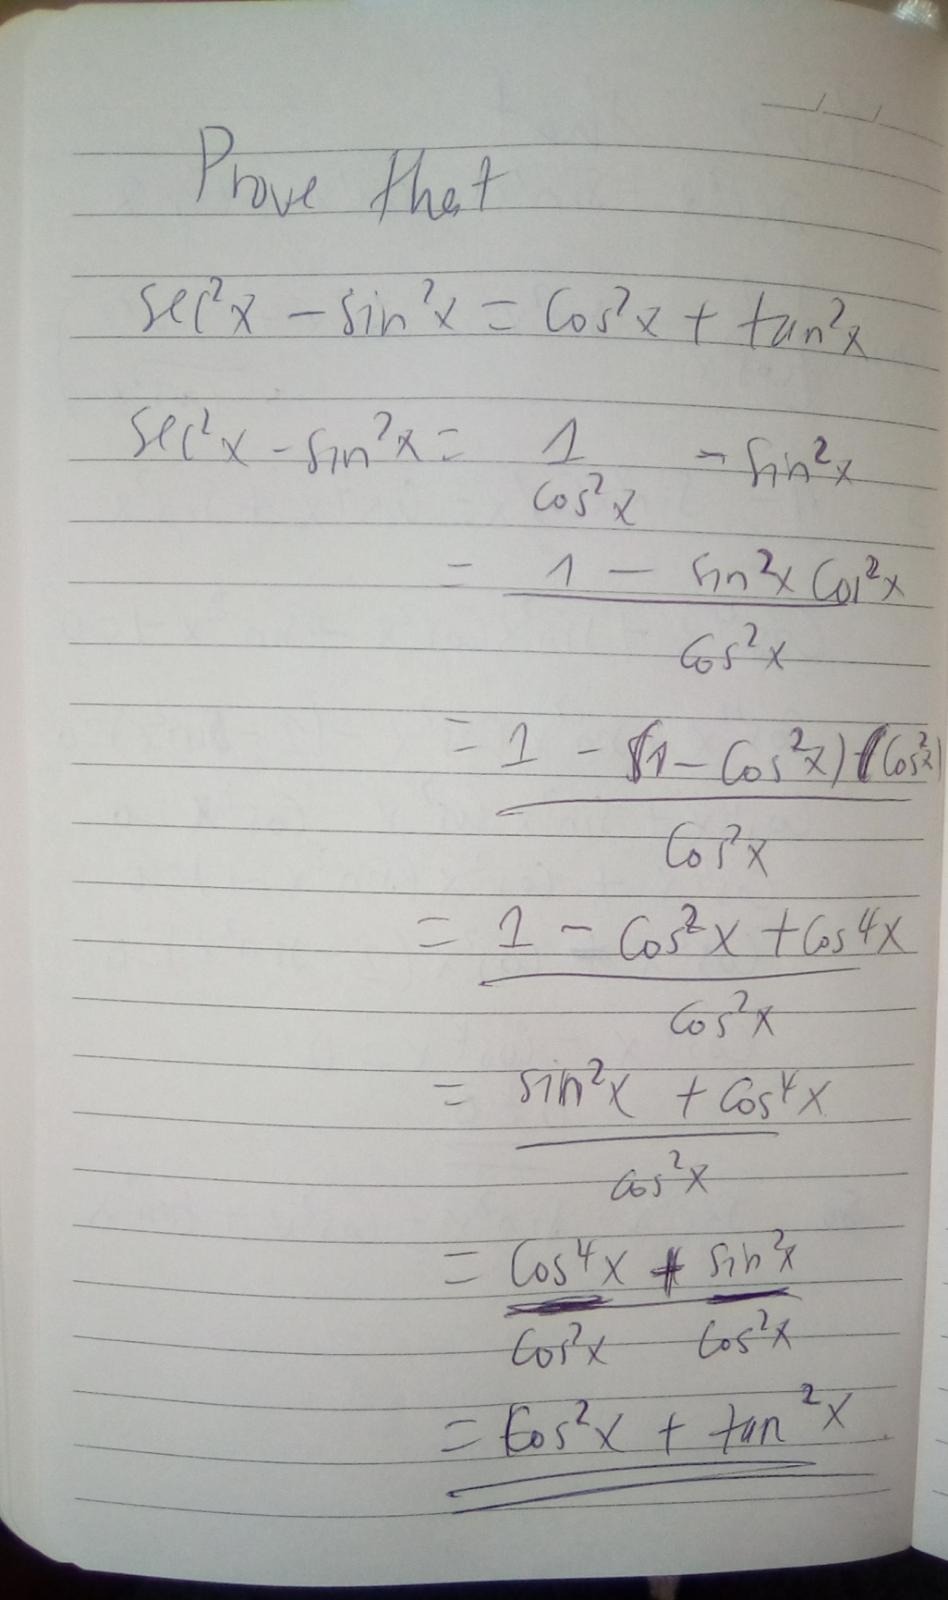 Prove that
sec²x - sin²x = cos²x + tan²x
sec²x - sin²x = 1 - sin²x
cos²x
= 1 - sin²x cos²x
cos²x
= 1 - (1 - cos²x)(cos²x)
cos²x
= 1 - cos²x + cos⁴x
cos²x
= sin²x + cos⁴x
cos²x
= cos⁴x + sin²x
cos²x cos²x
= cos²x + tan²x